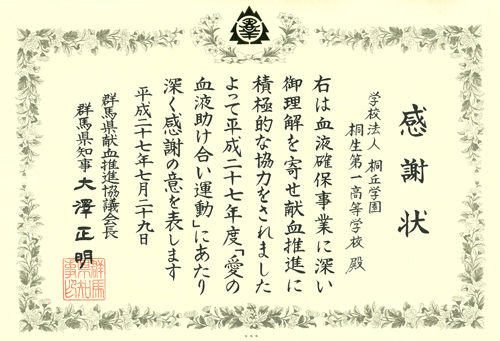 感謝状
学校法人 桐丘学園
桐生第一高等学校 殿
右は血液確保事業に深い
御理解を寄せ献血推進に
積極的な協力をされました
よって平成二十七年度「愛の
血液助け合い運動」にあたり
深く感謝の意を表します
平成二十七年七月二十九日
群馬県献血推進協議会長
群馬県知事 大澤正明
群馬県知事之印